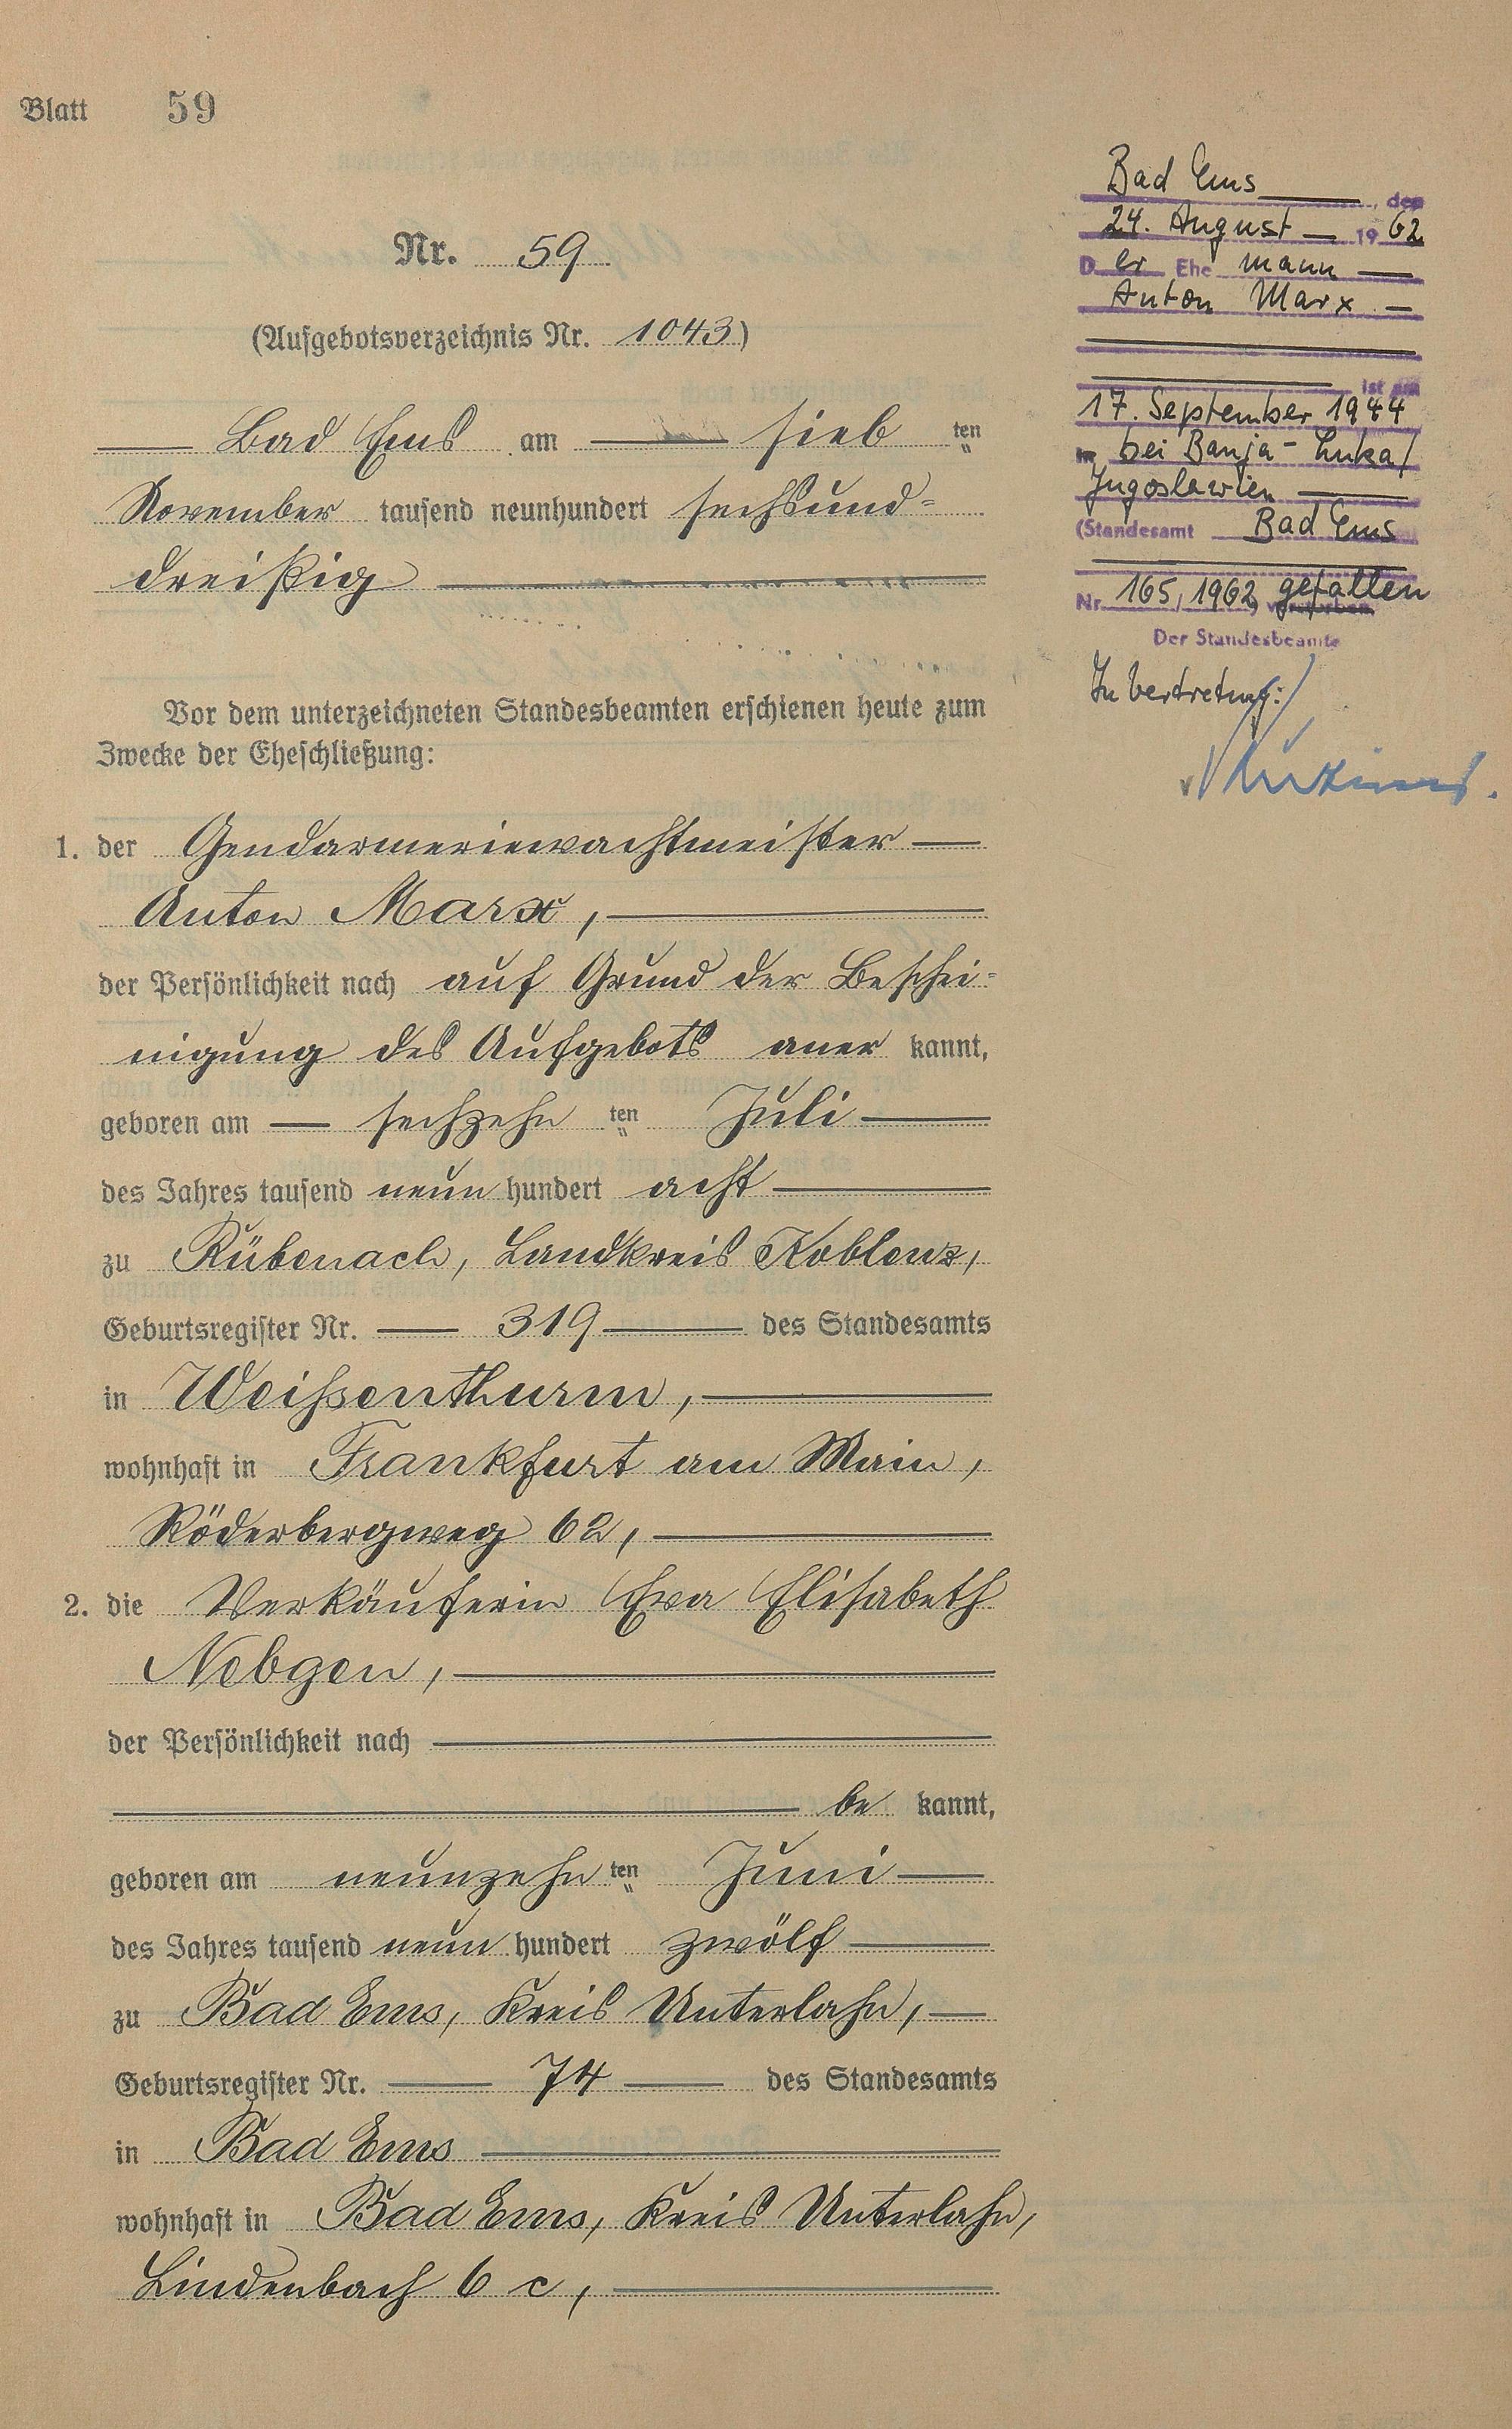 Blatt 59
Nr. 59
(Aufgebotsverzeichnis Nr. 1043)
Bad Ems am sieb ten
November tausend neunhundert sechsund-
dreißig
Vor dem unterzeichneten Standesbeamten erschienen heute zum
Zwecke der Eheschließung:
1. der Gendarmeriewachtmeister
Anton Marx,
der Persönlichkeit nach auf Grund der Beschei-
nigung des Aufgebots aner kannt,
geboren am sechzehn ten Juli
des Jahres tausend neun hundert acht
zu Rübenach, Landkreis Koblenz,
Geburtsregister Nr. 319 des Standesamts
in Weißenthurm,
wohnhaft in Frankfurt am Main,
Röderbergweg 62,
2. die Verkäuferin Eva Elisabeth
Nebgen,
der Persönlichkeit nach
be kannt,
geboren am neunzehn ten Juni
des Jahres tausend neun hundert zwölf
zu Bad Ems, Kreis Unterlahn,
Geburtsregister Nr. 74 des Standesamts
in Bad Ems
wohnhaft in Bad Ems, Kreis Unterlahn,
Lindenbach 6 c,
Bad Ems, den
24. August 1962
Der Ehemann
Anton Marx
ist am
17. September 1944
in bei Banja-Luka/
Jugoslawien
(Standesamt Bad Ems
Nr. 165/1962) verstorben gefallen
Der Standesbeamte
In Vertretung: